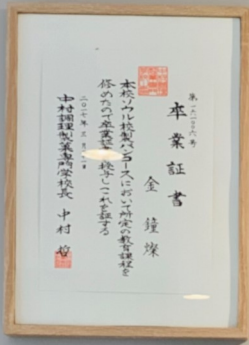 卒業証書
金鐘燦
本校ソウル校製パンコースにおいて所定の教育課程を
修めたので卒業証 授与しこれを証する
二〇一七年
中村調理製菓専門学校長 中村